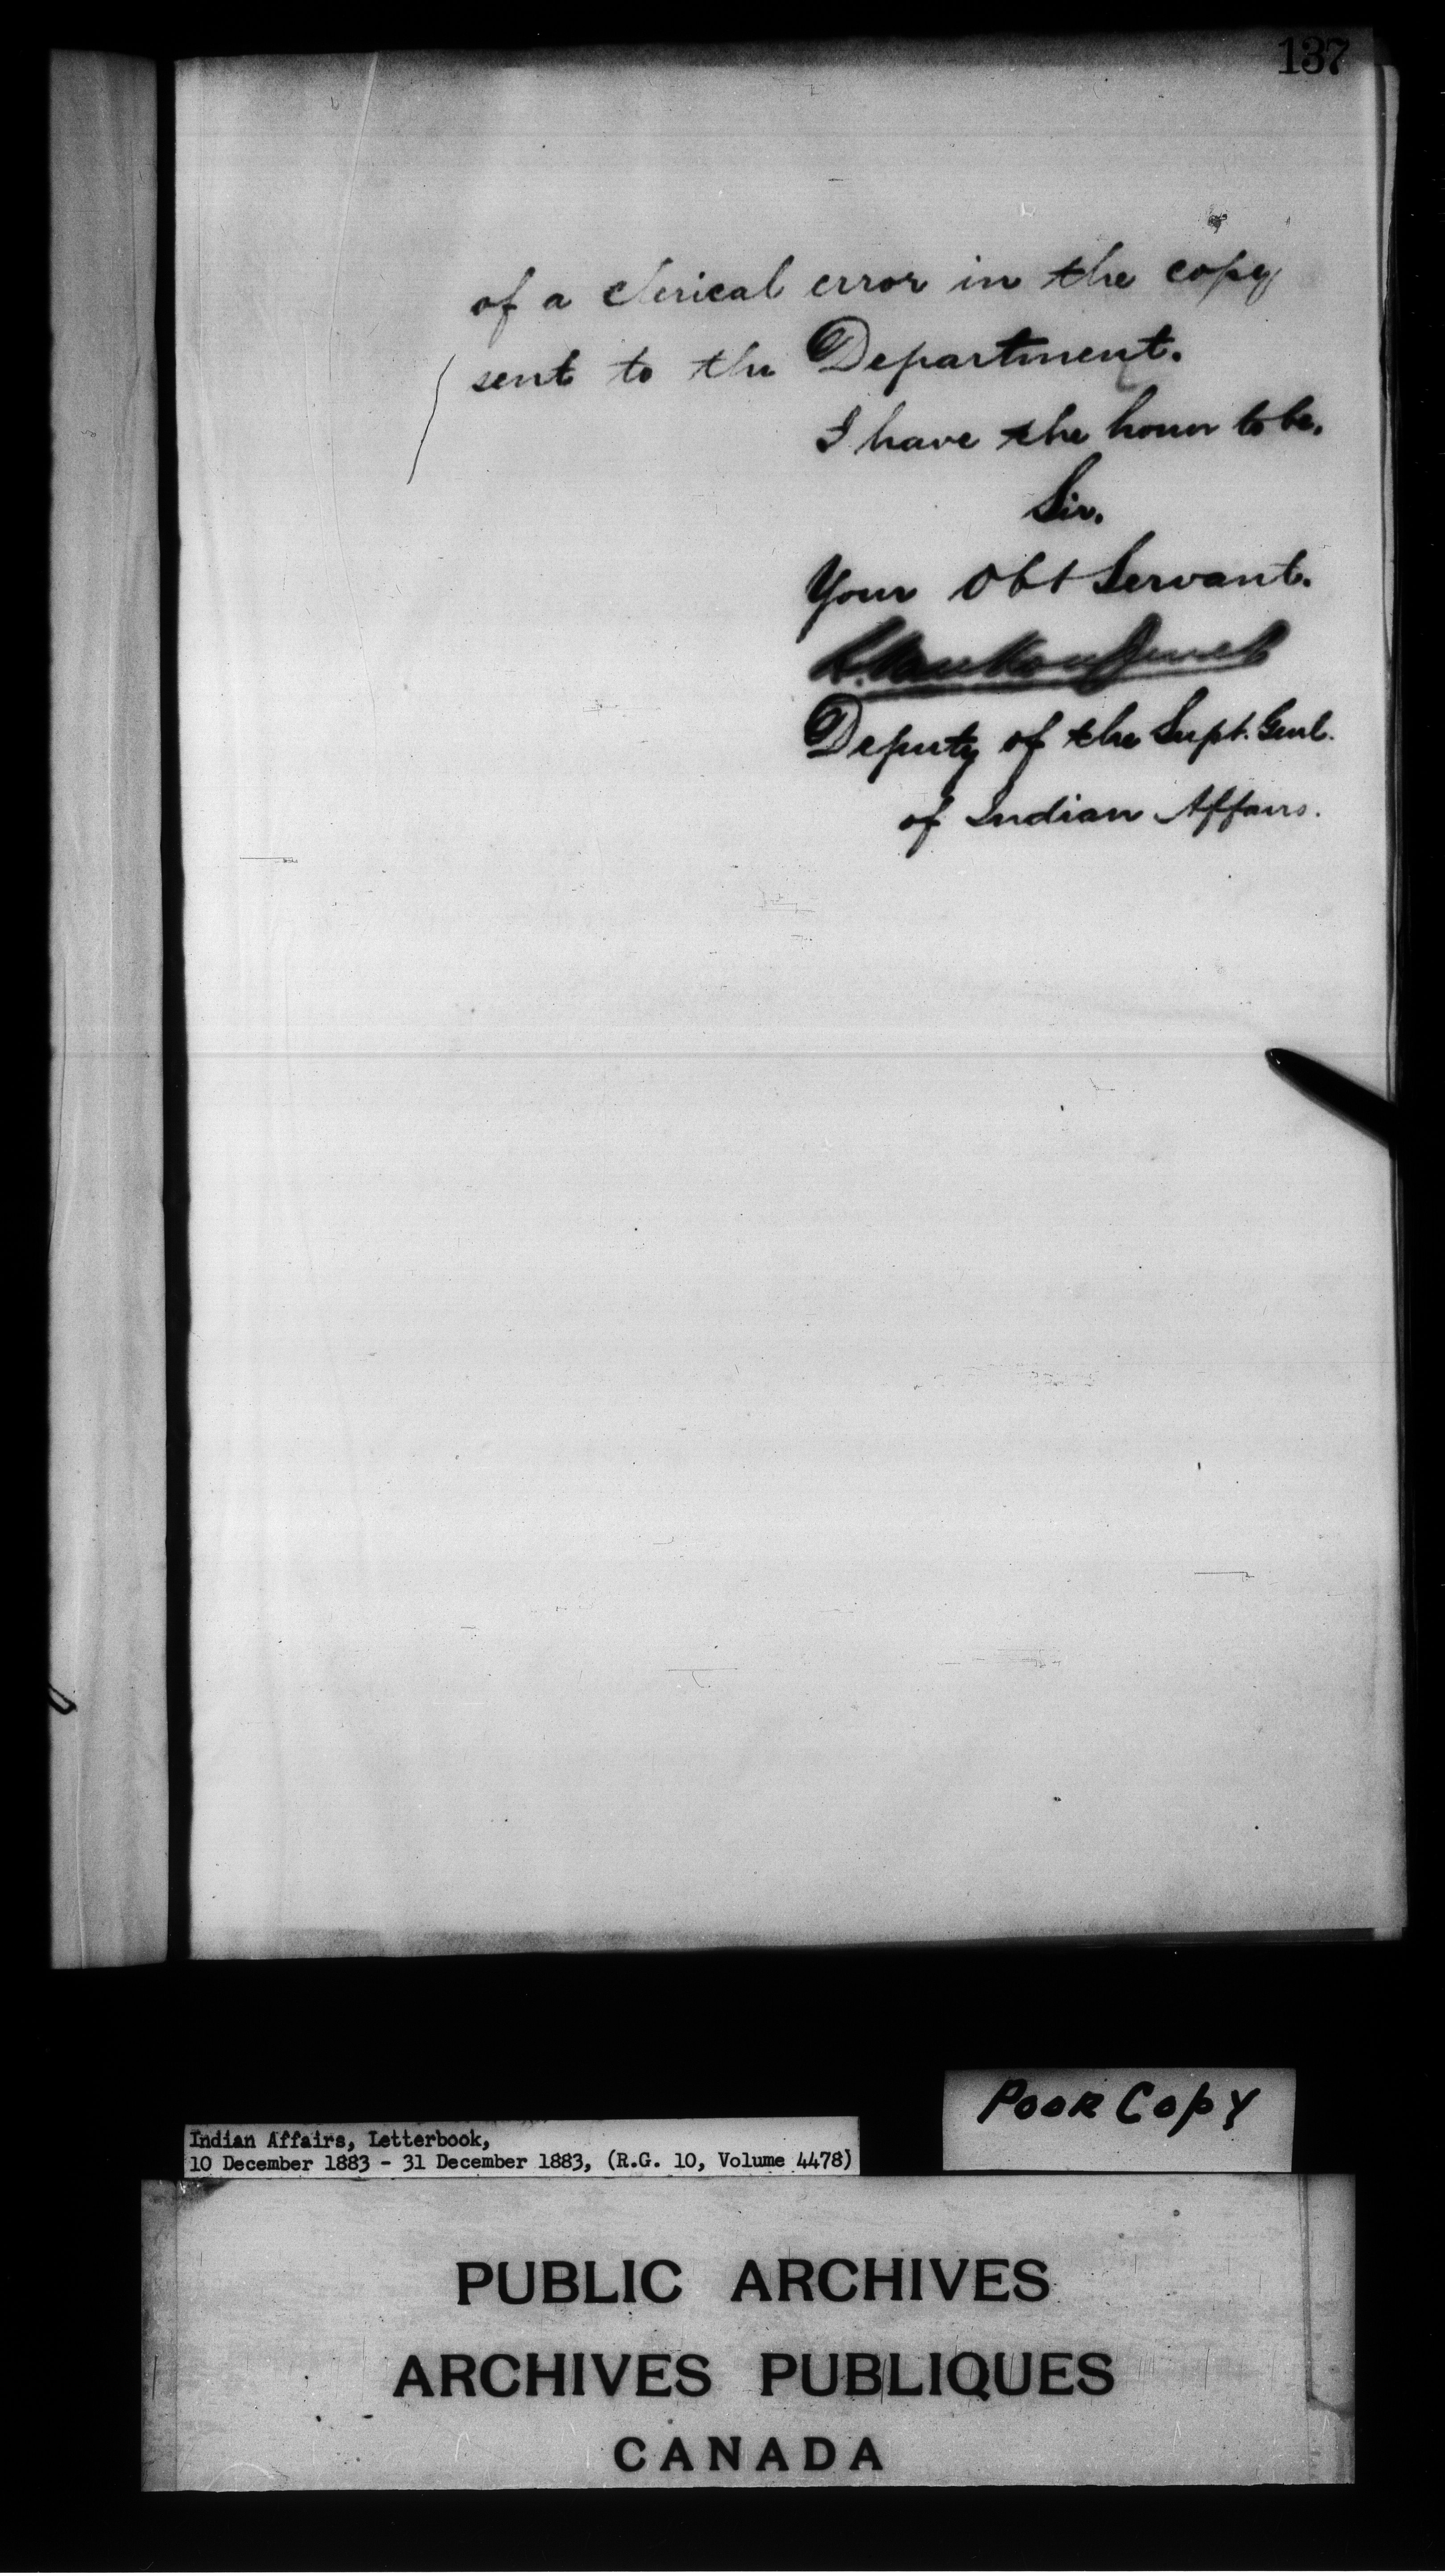 137
of a clerical error in the copy
sent to the Department.
I have the honor to be.
Sir.
Your Obt Servant.
L. Vankoughnet
Deputy of the Supt. Genl.
of Indian Affairs.
Poor Copy
Indian Affairs, Letterbook,
10 December 1883 - 31 December 1883, (R.G. 10, Volume 4478)
PUBLIC ARCHIVES
ARCHIVES PUBLIQUES
CANADA